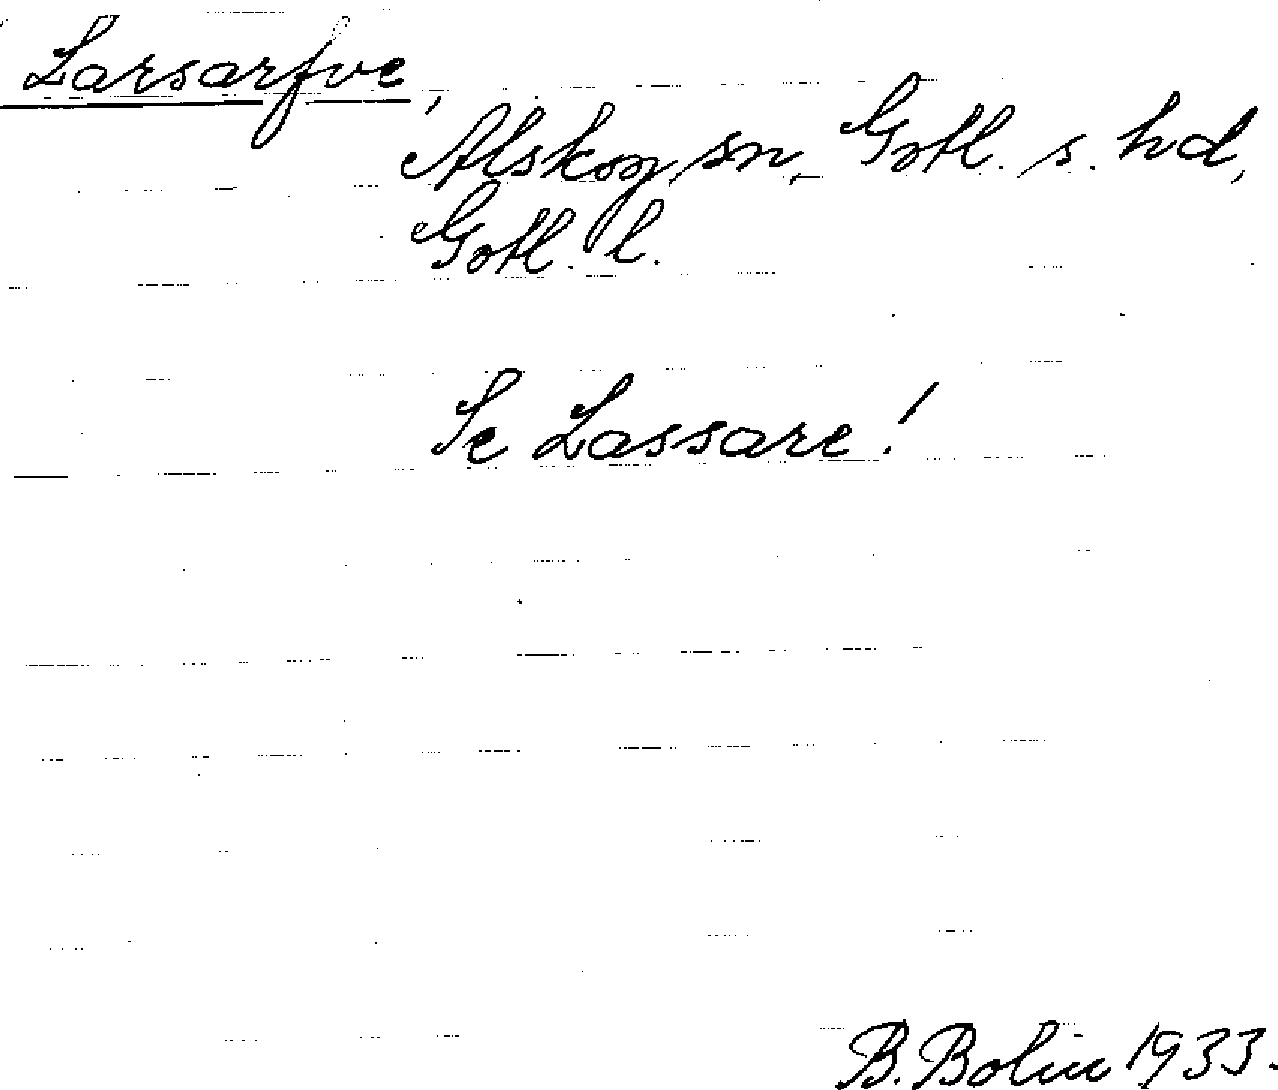 Larsarfve,
Alskog sn, Gotl. s. hd,
Gotl. l.
Se Lassare!
B. Bolin 1933.